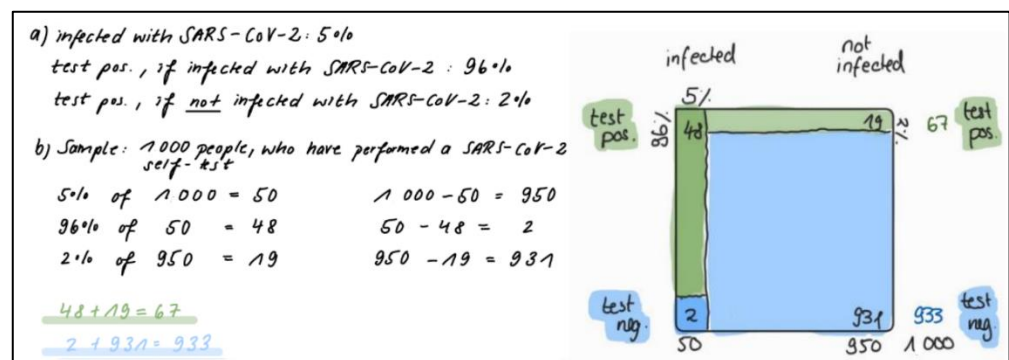 a) infected with SARS-CoV-2: 5%
test pos., if infected with SARS-CoV-2: 96%
test pos., if not infected with SARS-CoV-2: 2%
b) Sample: 1000 people, who have performed a SARS-CoV-2
self-test
5% of 1000 = 50
1000 - 50 = 950
96% of 50 = 48
50 - 48 = 2
2% of 950 = 19
950 - 19 = 931
48 + 19 = 67
2 + 931 = 933
infected
not
infected
5%
test
pos.
96%
48
19
2%
67
test
pos.
test
neg.
2
931
933
test
neg.
50
950
1000